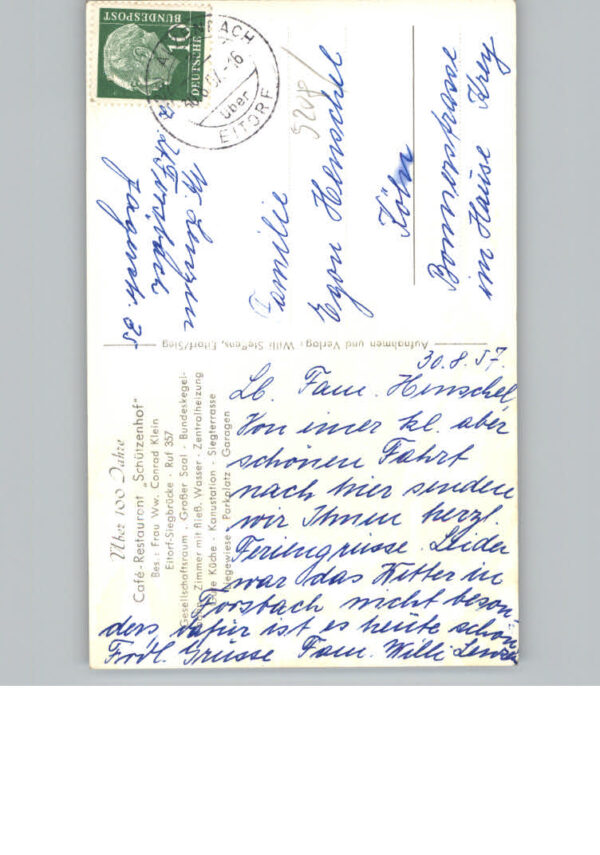 Über 100 Jahre
Café-Restaurant "Schützenhof"
Bes.: Frau Ww. Conrad Klein
Eitorf-Siegbrücke · Ruf 357
Gesellschaftsraum · Großer Saal · Bundeskegel-
Zimmer mit fließ. Wasser · Zentralheizung
Gute Küche · Kanustation · Siegterrasse
Liegewiese · Parkplatz · Garagen
30.8.57.
Lb. Fam. Henschel,
Von einer kl. aber
schönen Fahrt
nach hier senden
wir Ihnen herzl.
Feriengrüsse. Leider
war das Wetter in
Dorsbach nicht beson-
ders, dafür ist es heute schön
Frdl. Grüsse Fam. Willi Lenzen
Aufnahmen und Verlag: Willi Steffens, Eitorf/Sieg
DEUTSCHE
BUNDESPOST
10
über
EITORF
W. Lenzen
Jägerstr. 35
5208
Familie
Egon Henschel
Köln
Bonnerstrasse
im Hause Krey